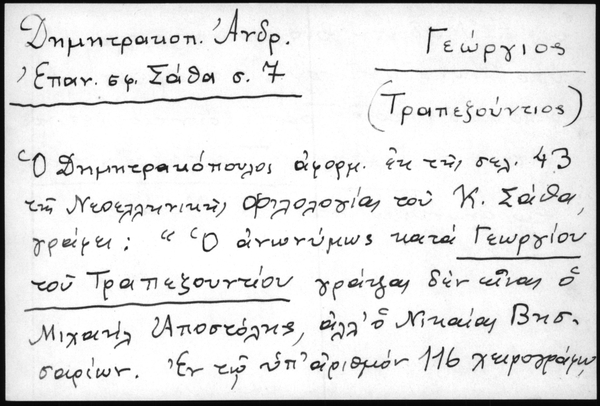 Δημητρακοπ. Ἀνδρ.
Ἐπαν. σφ. Σάθα σ. 7
Γεώργιος
(Τραπεζούντιος)
Ὁ Δημητρακόπουλος ἀφορμ. ἐκ τῆς σελ. 43
τῆς Νεοελληνικῆς Φιλολογίας τοῦ Κ. Σάθα,
γράφει: "Ὁ ἀνωνύμως κατά Γεωργίου
τοῦ Τραπεζουντίου γράψας δὲν εἶναι ὁ
Μιχαήλ Ἀποστόλης, ἀλλ' ὁ Νικαίας Βησ-
σαρίων. Ἐν τῷ ὑπ' ἀριθμόν 116 χειρογράφῳ